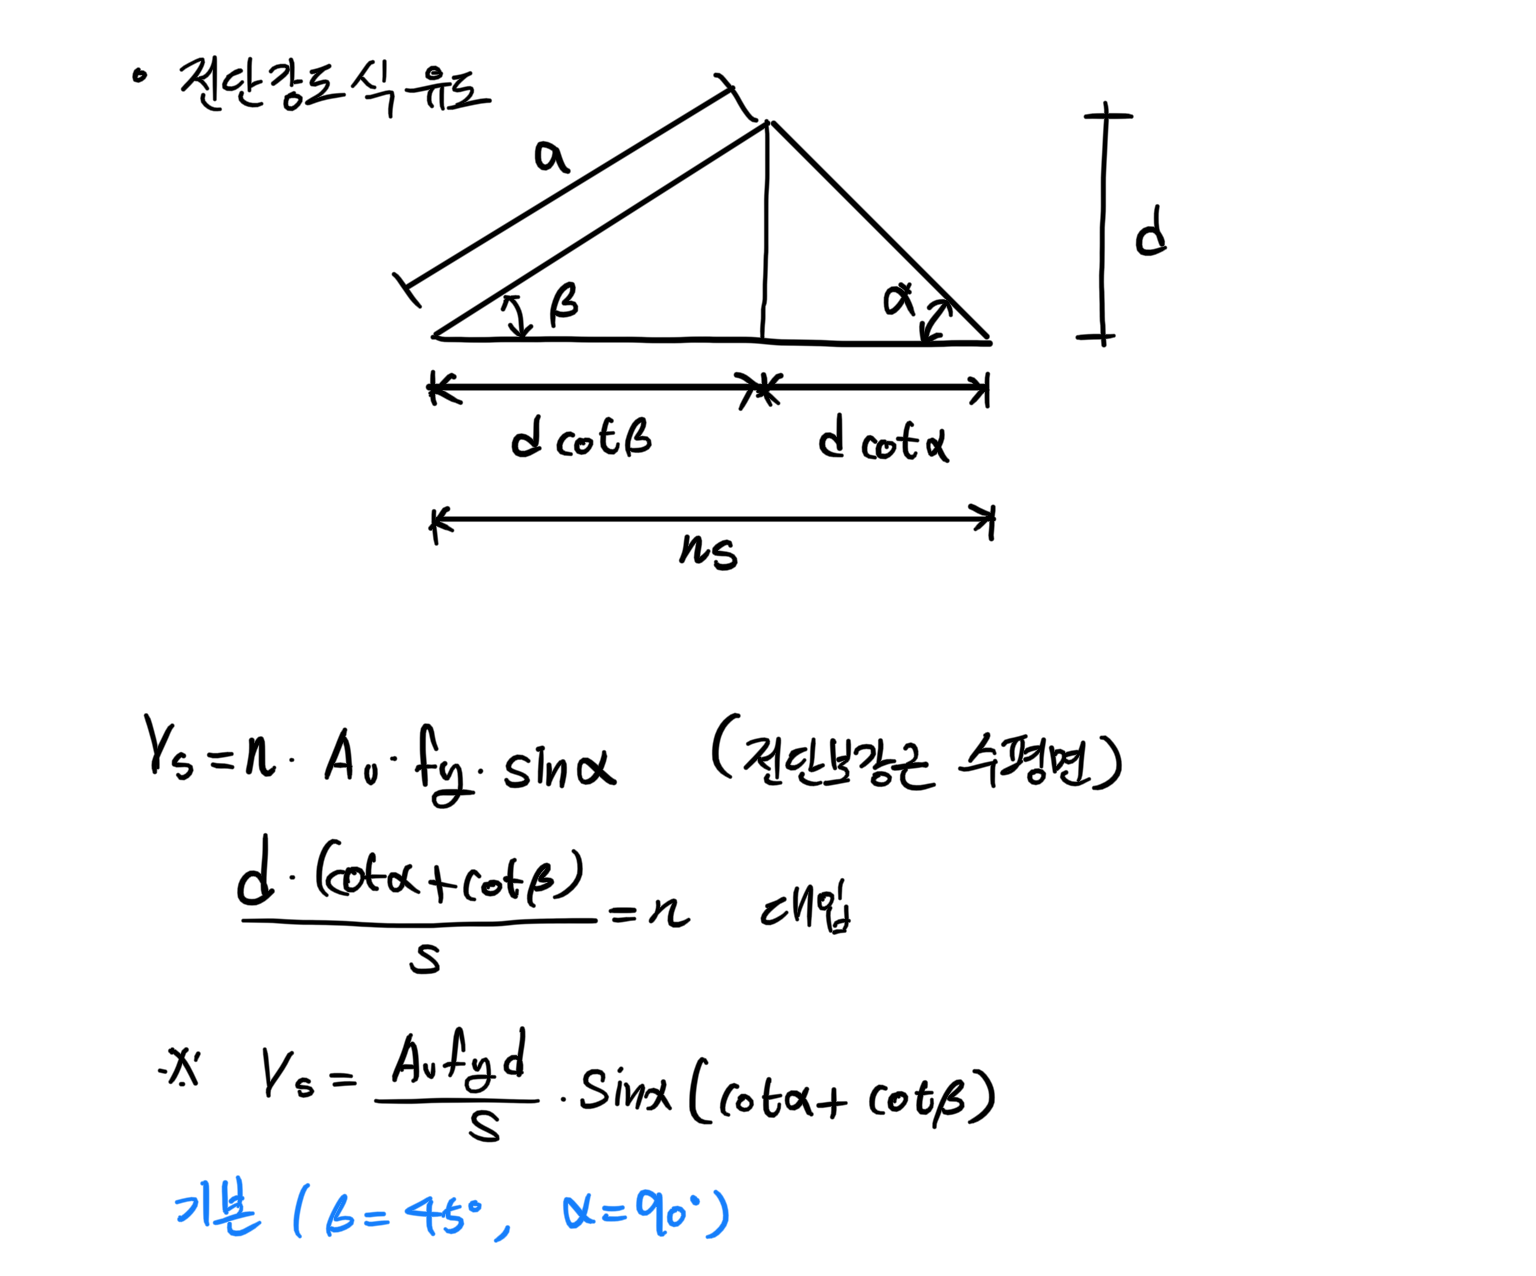 • 전단강도 식 유도
a
d
β
α
d cotβ
d cotα
ns
Vs = n · Av · fy · sinα (전단보강근 수평면)
d · (cotα + cotβ)
s
= n 대입
※ Vs = Av fy d / s · Sinα (cotα + cotβ)
기본 (β = 45°, α = 90°)